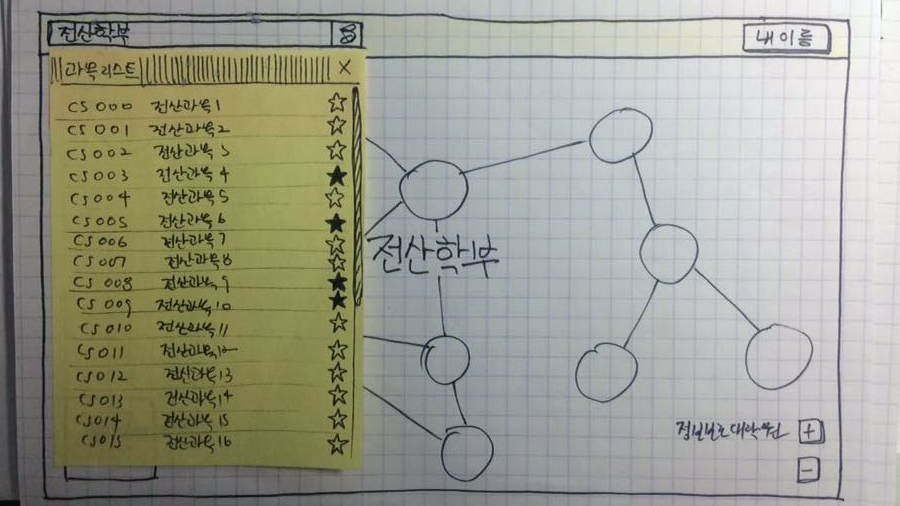 전산학부
내 이름
과목리스트 X
CS 000 전산과목1
CS 001 전산과목2
CS 002 전산과목3
CS 003 전산과목4
CS 004 전산과목5
CS 005 전산과목6
CS 006 전산과목7
CS 007 전산과목8
CS 008 전산과목9
CS 009 전산과목10
CS 010 전산과목11
CS 011 전산과목12
CS 012 전산과목13
CS 013 전산과목14
CS 014 전산과목15
CS 015 전산과목16
전산학부
정보보호대학원 +
-